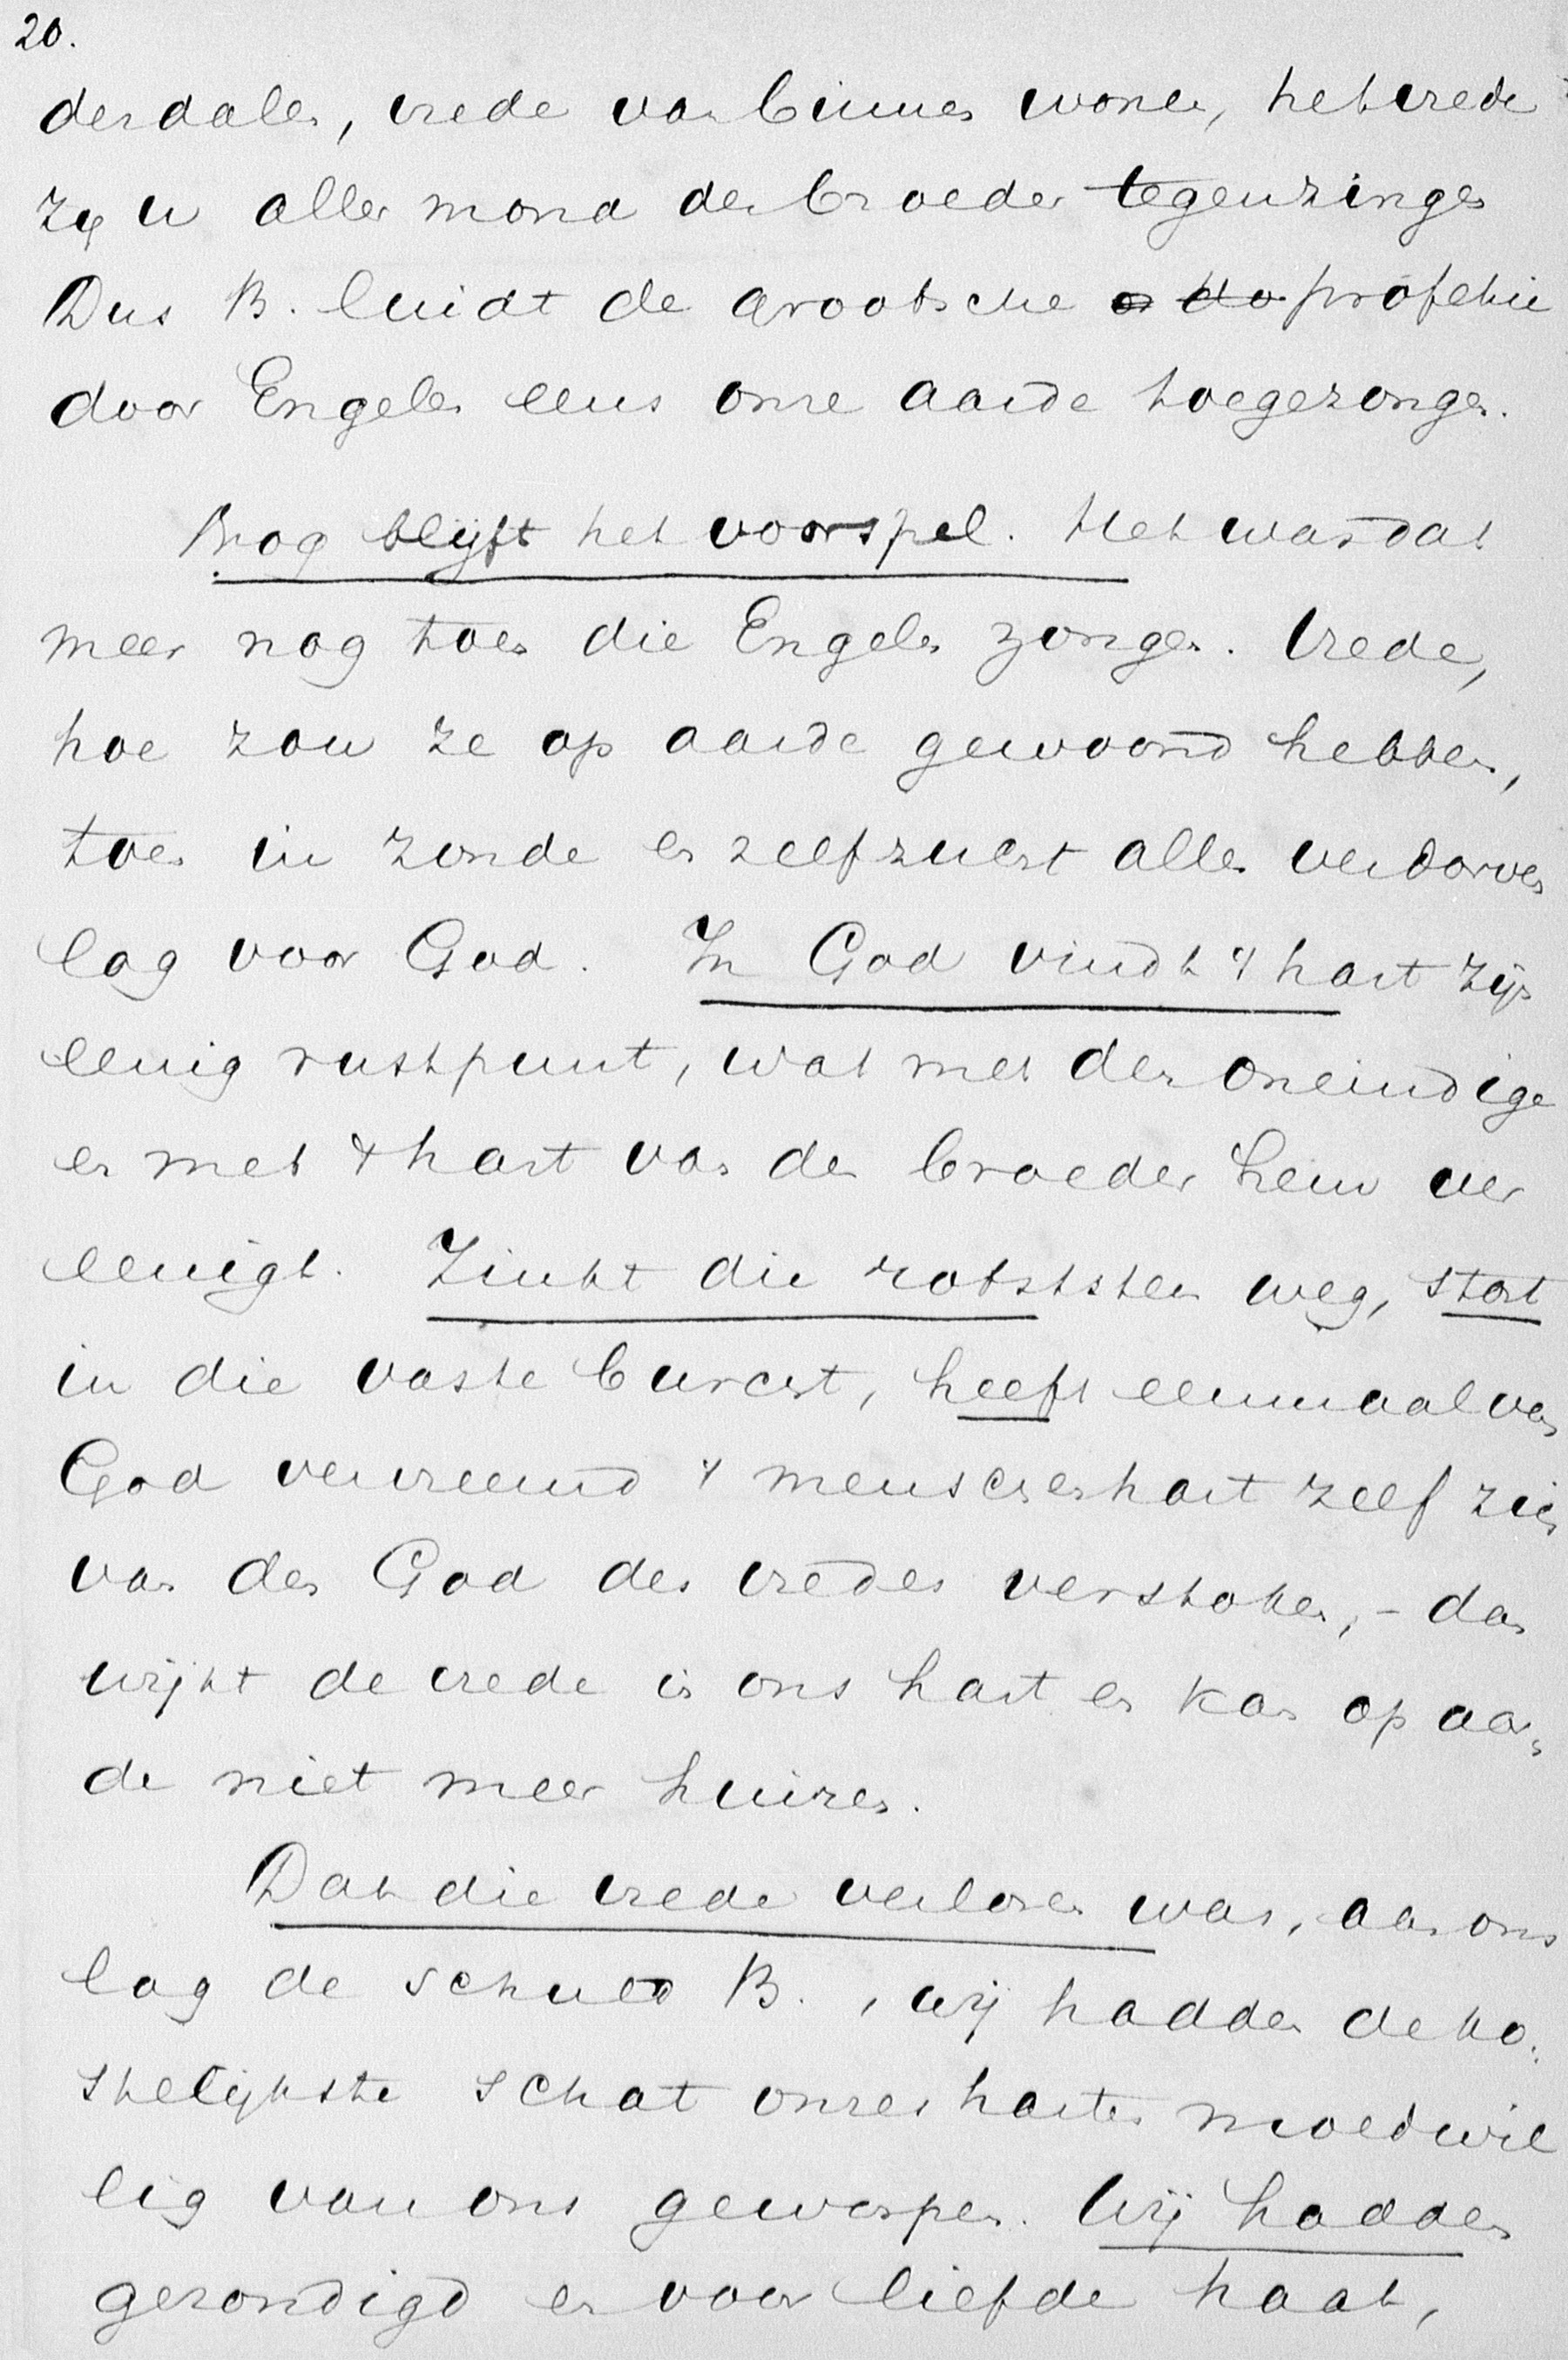 20.
derdalen, vrede van binnen wonen, het vrede
zij u aller mond den broeder tegenzingen
Dus B. luidt de grootsche profetie
door Engelen eens onze aarde toegezongen.
Nog blijft het voorspel. Het was dat
meer nog toen die Engelen zongen. Vrede,
hoe zou ze op aarde gewoond hebben,
toen in zonde en zelfzucht alles verdorven
lag voor God. In God vindt 't hart zijn
eenig rustpunt, wat met den oneindige
en met 't hart van den broeder hem ver
eenigt. Zinkt die rotssteen weg, stort
in die vaste burcht, heeft eenmaal van
God vervreemd 't menschenhart zelf zich
van den God des vredes verstoken, - dan
wijkt de vrede in ons hart en kan op aar-
de niet meer huizen.
Dat die vrede verloren was, aan ons
lag de schuld B., wij hadden de ko-
stelijkste schat onzes harten moedwil
lig van ons geworpen. Wij hadden
gezondigd en voor liefde haat,